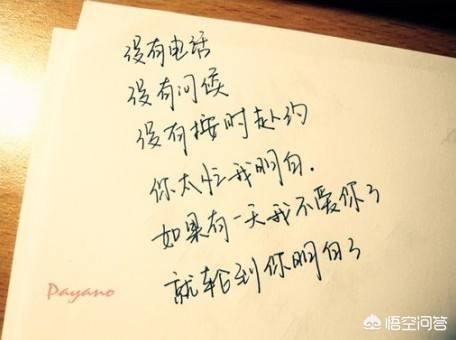 没有电话
没有问候
没有按时赴约
你太忙我明白.
如果有一天我不爱你了
就轮到你明白了
Payano
悟空问答